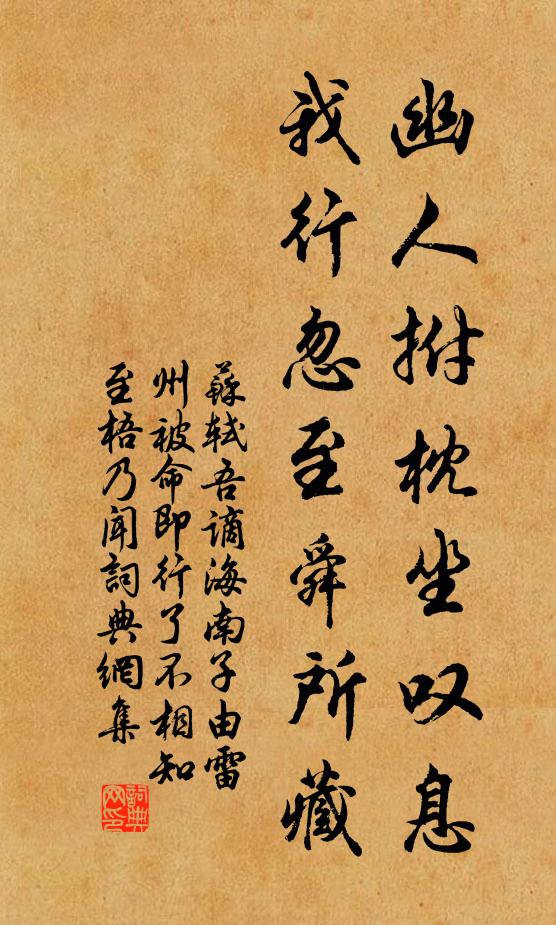 幽人拊枕坐叹息
我行忽至舜所藏
蘇軾吾謫海南子由雷
州被命即行了不相知
至梧乃闻詞典網集
詞典网印